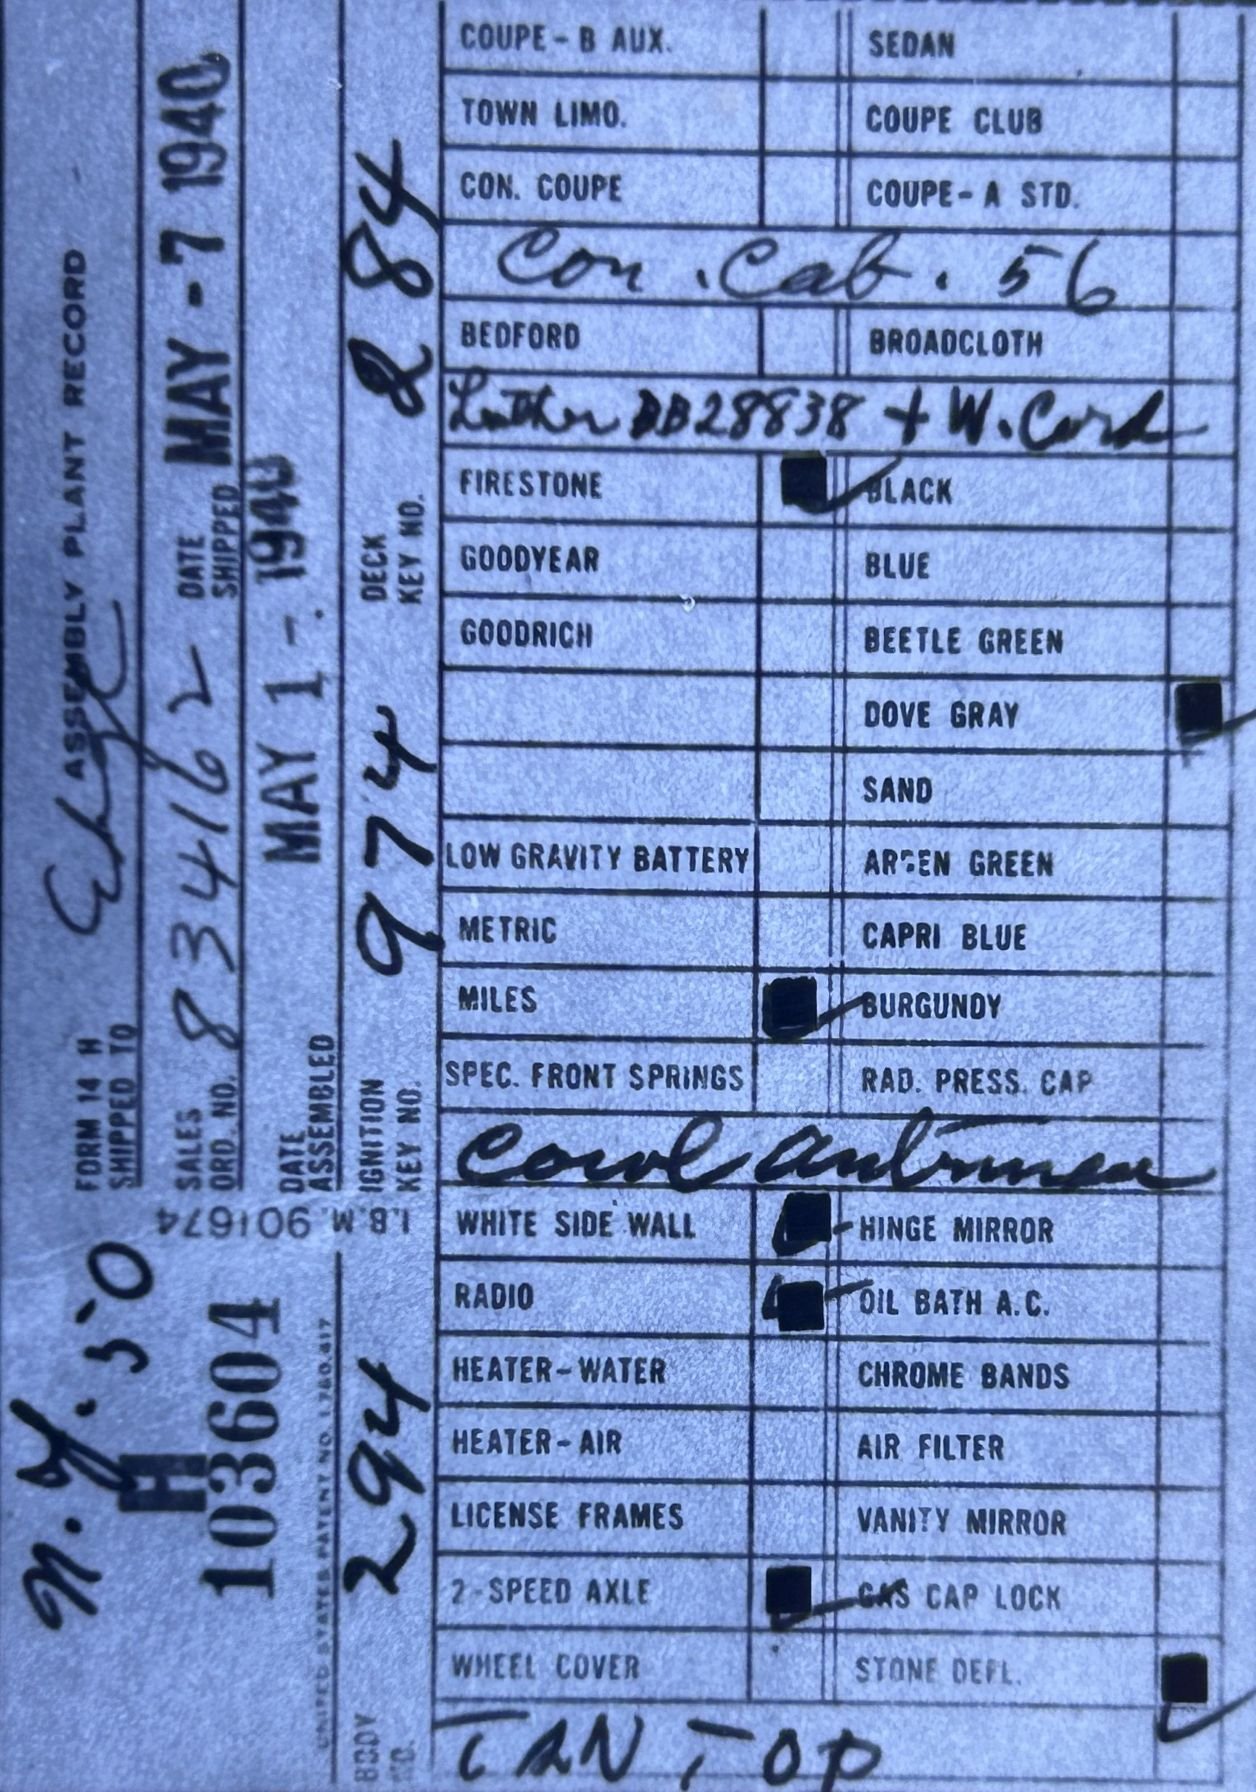 FORM 14 H ASSEMBLY PLANT RECORD
SHIPPED TO
SALES ORD. NO. 834162 DATE SHIPPED MAY - 7 1940
DATE ASSEMBLED MAY 1 - 1940
IGNITION KEY NO. 974 DECK KEY NO. 284
N.Y. 50
H
103604
I.B.M. 901674
UNITED STATES PATENT NO. 1,780,417
BODY NO. 294
COUPE - B AUX. SEDAN
TOWN LIMO. COUPE CLUB
CON. COUPE COUPE - A STD.
Con. Cab. 56
BEDFORD BROADCLOTH
Leather BB28838 + W. Cord
FIRESTONE BLACK
GOODYEAR BLUE
GOODRICH BEETLE GREEN
DOVE GRAY
SAND
LOW GRAVITY BATTERY GREEN
METRIC CAPRI BLUE
MILES BURGUNDY
SPEC. FRONT SPRINGS RAD. PRESS. CAP
Cowl antennea
WHITE SIDE WALL HINGE MIRROR
RADIO OIL BATH A.C.
HEATER - WATER CHROME BANDS
HEATER - AIR AIR FILTER
LICENSE FRAMES VANITY MIRROR
2 - SPEED AXLE GAS CAP LOCK
WHEEL COVER STONE DEFL.
TAN TOP